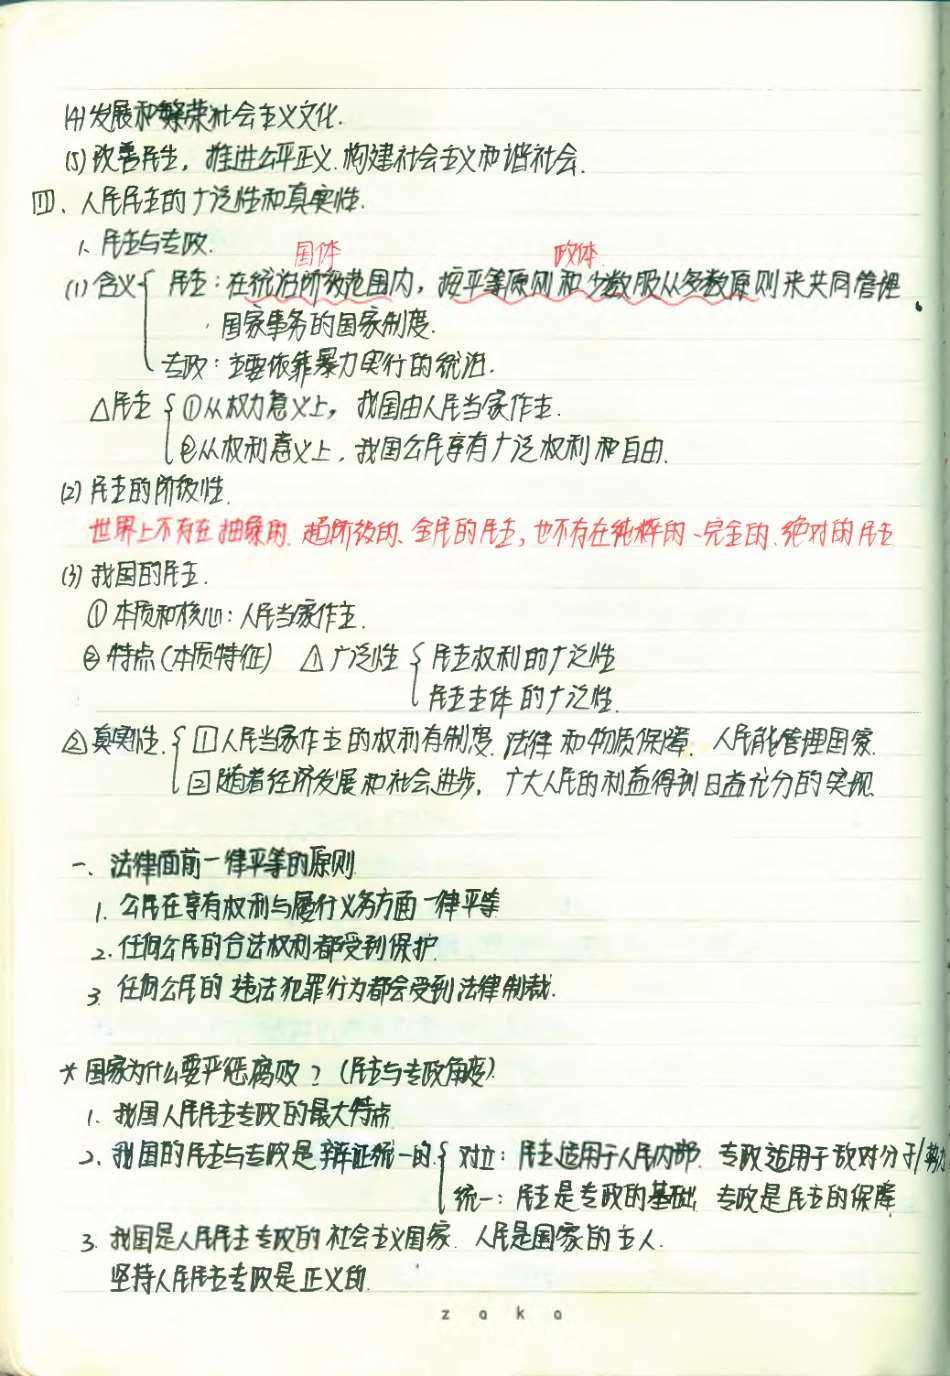 (4)发展和繁荣社会主义文化.
(5)改善民生，推进公平正义.构建社会主义和谐社会.
四、人民民主的广泛性和真实性.
1、民主与专政.
国体 政体
(1)含义{ 民主：在统治阶级范围内，按平等原则和少数服从多数原则来共同管理
国家事务的国家制度.
专政：主要依靠暴力实行的统治.
△民主{ ①从权力意义上，我国由人民当家作主.
②从权利意义上，我国公民享有广泛权利和自由.
(2)民主的阶级性.
世界上不存在抽象的、超阶级的、全民的民主，也不存在纯粹的、完全的、绝对的民主
(3)我国的民主.
①本质和核心：人民当家作主.
②特点(本质特征) △1广泛性{ 民主权利的广泛性
民主主体的广泛性.
△2真实性.{ 1人民当家作主的权利有制度、法律和物质保障. 人民能管理国家.
2随着经济发展和社会进步，广大人民的利益得到日益充分的实现.
一、法律面前一律平等的原则.
1.公民在享有权利与履行义务方面一律平等
2.任何公民的合法权利都受到保护.
3.任何公民的违法犯罪行为都会受到法律制裁.
*国家为什么要严惩腐败？(民主与专政角度).
1.我国人民民主专政的最大特点
2.我国的民主与专政是辩证统一的.{ 对立：民主适用于人民内部. 专政适用于敌对分子/势力
统一：民主是专政的基础，专政是民主的保障
3.我国是人民民主专政的社会主义国家. 人民是国家的主人.
坚持人民民主专政是正义的.
zaka